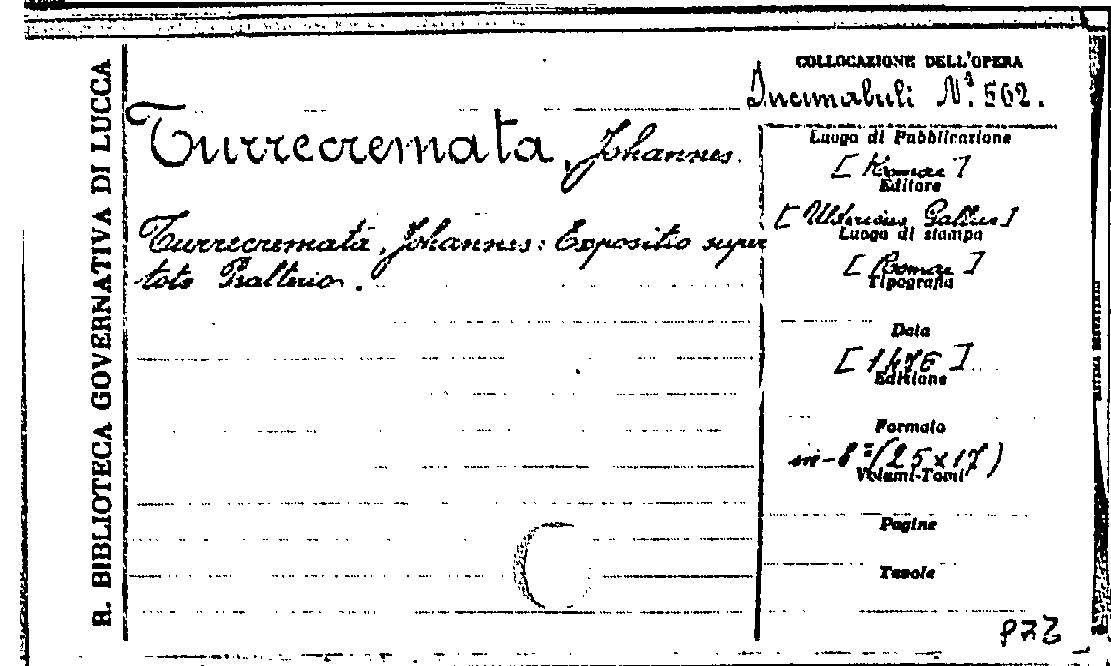 R. BIBLIOTECA GOVERNATIVA DI LUCCA
COLLOCAZIONE DELL'OPERA
Incunabuli N.º 502.
Turrecremata, Johannes.
Turrecremata, Johannes: Expositio super
toto Psalterio.
Luogo di Pubblicazione
[Romae]
Editore
[Uldericus Gallus]
Luogo di stampa
[Romae]
Tipografia
Data
[1476]
Edizione
Formato
in-8º (25x17)
Volumi-Tomi
Pagine
Tavole